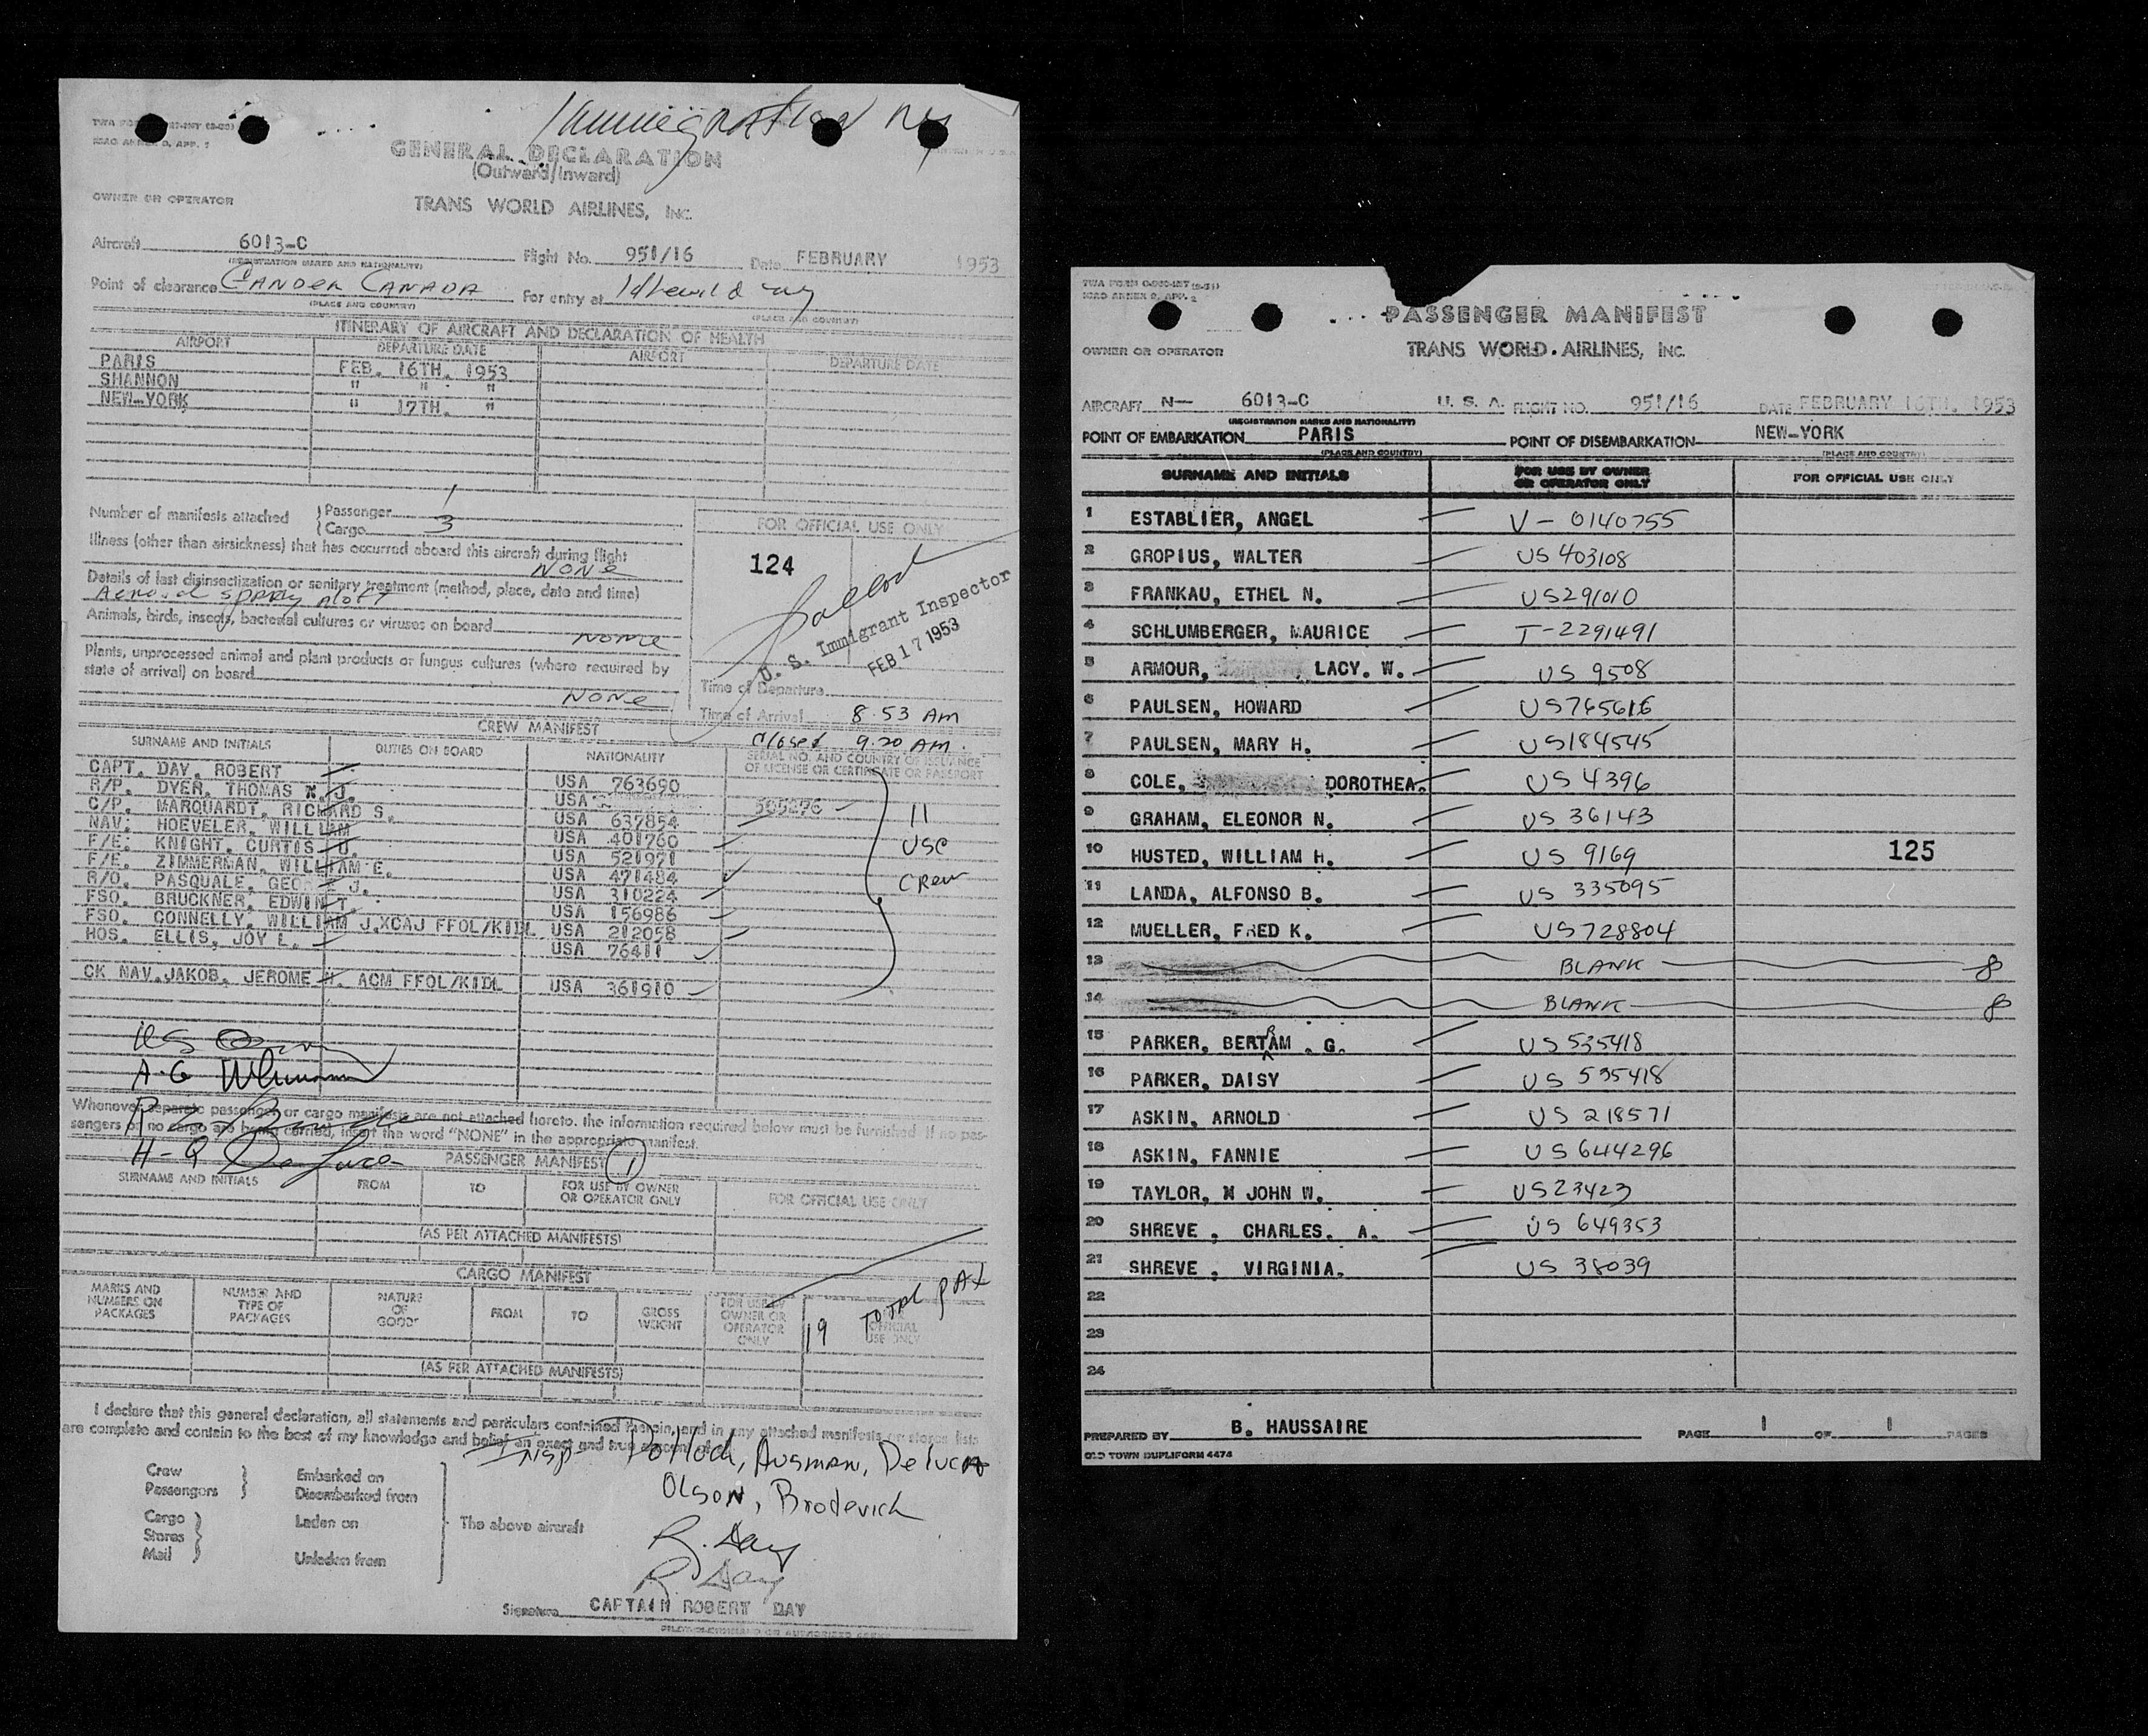 Immigration NY
ICAO ANNEX 9, APP. 1
GENERAL DECLARATION
(Outward/Inward)
OWNER OR OPERATOR
TRANS WORLD AIRLINES, INC.
Aircraft 6013-C Flight No. 951/16 Date FEBRUARY 1953
(REGISTRATION MARKS AND NATIONALITY)
Point of clearance GANDER CANADA For entry at Idlewild NY
(PLACE AND COUNTRY) (PLACE AND COUNTRY)
ITINERARY OF AIRCRAFT AND DECLARATION OF HEALTH
AIRPORT DEPARTURE DATE AIRPORT DEPARTURE DATE
PARIS FEB. 16TH. 1953
SHANNON " " "
NEW-YORK " 17TH. "
Number of manifests attached } Passenger 1
Cargo 3
FOR OFFICIAL USE ONLY
Illness (other than airsickness) that has occurred aboard this aircraft during flight
NONE
124
Details of last disinsectization or sanitary treatment (method, place, date and time)
Aerosol spray aloft
Animals, birds, insects, bacterial cultures or viruses on board NONE
Plants, unprocessed animal and plant products or fungus cultures (where required by
state of arrival) on board
NONE
U. S. Immigrant Inspector
FEB 17 1953
Time of Departure
Time of Arrival 8:53 AM
Closed 9:20 AM.
CREW MANIFEST
SURNAME AND INITIALS DUTIES ON BOARD NATIONALITY SERIAL NO. AND COUNTRY OF ISSUANCE
OF LICENSE OR CERTIFICATE OR PASSPORT
CAPT. DAY, ROBERT USA 763690
R/P. DYER, THOMAS J. USA 505276
C/P. MARQUARDT, RICHARD S. USA 637854
NAV. HOEVELER, WILLIAM USA 401760
F/E. KNIGHT, CURTIS U. USA 521971
F/E. ZIMMERMAN, WILLIAM E. USA 471484
R/O. PASQUALE, GEO J. USA 310224
FSO. BRUCKNER, EDWIN T. USA 156986
FSO. CONNELLY, WILLIAM J.XCAJ FFOL/KIDL USA 212058
HOS. ELLIS, JOY L. USA 76411
CK NAV.JAKOB, JEROME H. ACM FFOL/KIDL USA 361910
11
USC
CREW
Whenever separate passenger or cargo manifests are not attached hereto, the information required below must be furnished. If no pas-
sengers or no cargo are being carried, insert the word "NONE" in the appropriate manifest.
PASSENGER MANIFEST 1
SURNAME AND INITIALS FROM TO FOR USE BY OWNER
OR OPERATOR ONLY FOR OFFICIAL USE ONLY
(AS PER ATTACHED MANIFESTS)
CARGO MANIFEST
MARKS AND
NUMBERS ON
PACKAGES
NUMBER AND
TYPE OF
PACKAGES
NATURE
OF
GOODS
FROM
TO
GROSS
WEIGHT
FOR USE BY
OWNER OR
OPERATOR
ONLY
OFFICIAL
USE ONLY
19 TOTAL PAX
(AS PER ATTACHED MANIFESTS)
I declare that this general declaration, all statements and particulars contained therein, and in any attached manifests or stores lists
are complete and contain to the best of my knowledge and belief an exact and true
Insp Pollock, Ausman, DeLuca
Olson, Brodevich
Crew
Passengers
} Embarked on
Disembarked from
Cargo
Stores
Mail
} Laden on
Unladen from
The above aircraft
R. Day
R. Day
Signature CAPTAIN ROBERT DAY
ICAO ANNEX 9, APP. 2
PASSENGER MANIFEST
OWNER OR OPERATOR
TRANS WORLD AIRLINES, INC.
AIRCRAFT N- 6013-C U. S. A. FLIGHT NO. 951/16 DATE FEBRUARY 16TH. 1953
(REGISTRATION MARKS AND NATIONALITY)
POINT OF EMBARKATION PARIS POINT OF DISEMBARKATION NEW-YORK
(PLACE AND COUNTRY) (PLACE AND COUNTRY)
SURNAME AND INITIALS FOR USE BY OWNER
OR OPERATOR ONLY FOR OFFICIAL USE ONLY
1 ESTABLIER, ANGEL V-0140755
2 GROPIUS, WALTER US 403108
3 FRANKAU, ETHEL N. US291010
4 SCHLUMBERGER, MAURICE T-2291491
5 ARMOUR, LACY. W. US 9508
6 PAULSEN, HOWARD US765616
7 PAULSEN, MARY H. US184545
8 COLE, DOROTHEA. US 4396
9 GRAHAM, ELEONOR N. US 36143
10 HUSTED, WILLIAM H. US 9169 125
11 LANDA, ALFONSO B. US 335095
12 MUELLER, FRED K. US728804
13 BLANK
14 BLANK
15 PARKER, BERTRAM . G. US 535418
16 PARKER, DAISY US 535418
17 ASKIN, ARNOLD US 218571
18 ASKIN, FANNIE US 644296
19 TAYLOR, JOHN W. US23423
20 SHREVE , CHARLES. A. US 649353
21 SHREVE , VIRGINIA. US 38039
22
23
24
PREPARED BY B. HAUSSAIRE PAGE 1 OF 1 PAGES
OLD TOWN DUPLIFORM 4474